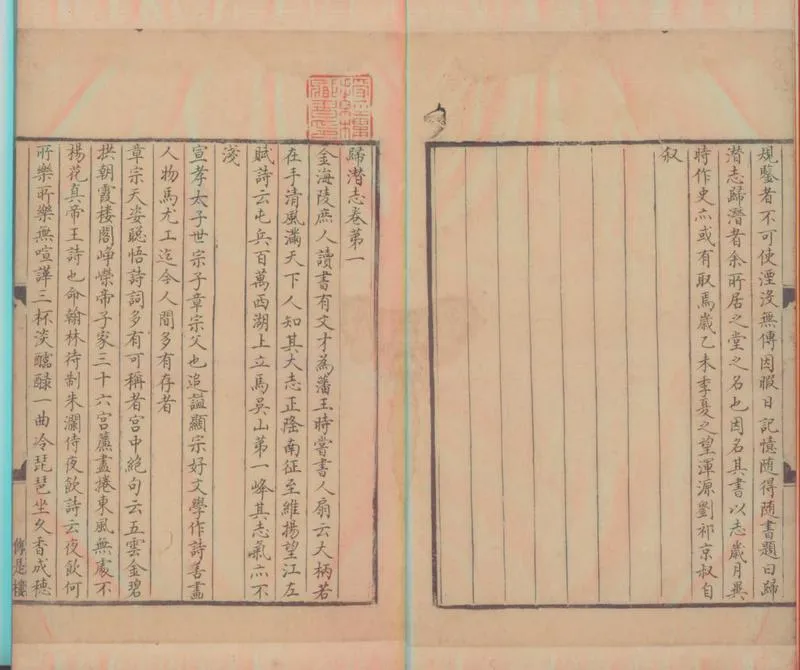 規鑒者不可使湮沒無傳因暇日記憶隨得隨書題曰歸
潛志歸潛者余所居之堂之名也因名其書以志歲月異
時作史亦或有取焉歲乙未季夏之望渾源劉祁京叔自
叙
歸潛志卷第一
金海陵庶人讀書有文才為藩王時嘗書人扇云大柄若
在手清風滿天下人知其大志正隆南征至維揚望江左
賦詩云屯兵百萬西湖上立馬吳山第一峰其志氣亦不
淺
宣孝太子世宗子章宗父也追諡顯宗好文學作詩善畫
人物馬尤工迄今人間多有存者
章宗天姿聡悟詩詞多有可稱者宮中絕句云五雲金碧
拱朝霞樓閣崢嶸帝子家三十六宮簾盡捲東風無處不
楊花真帝王詩也命翰林待制朱瀾侍夜飲詩云夜飲何
所樂所樂無喧譁三杯淡醽醁一曲冷琵琶坐久香成穗
傳是樓